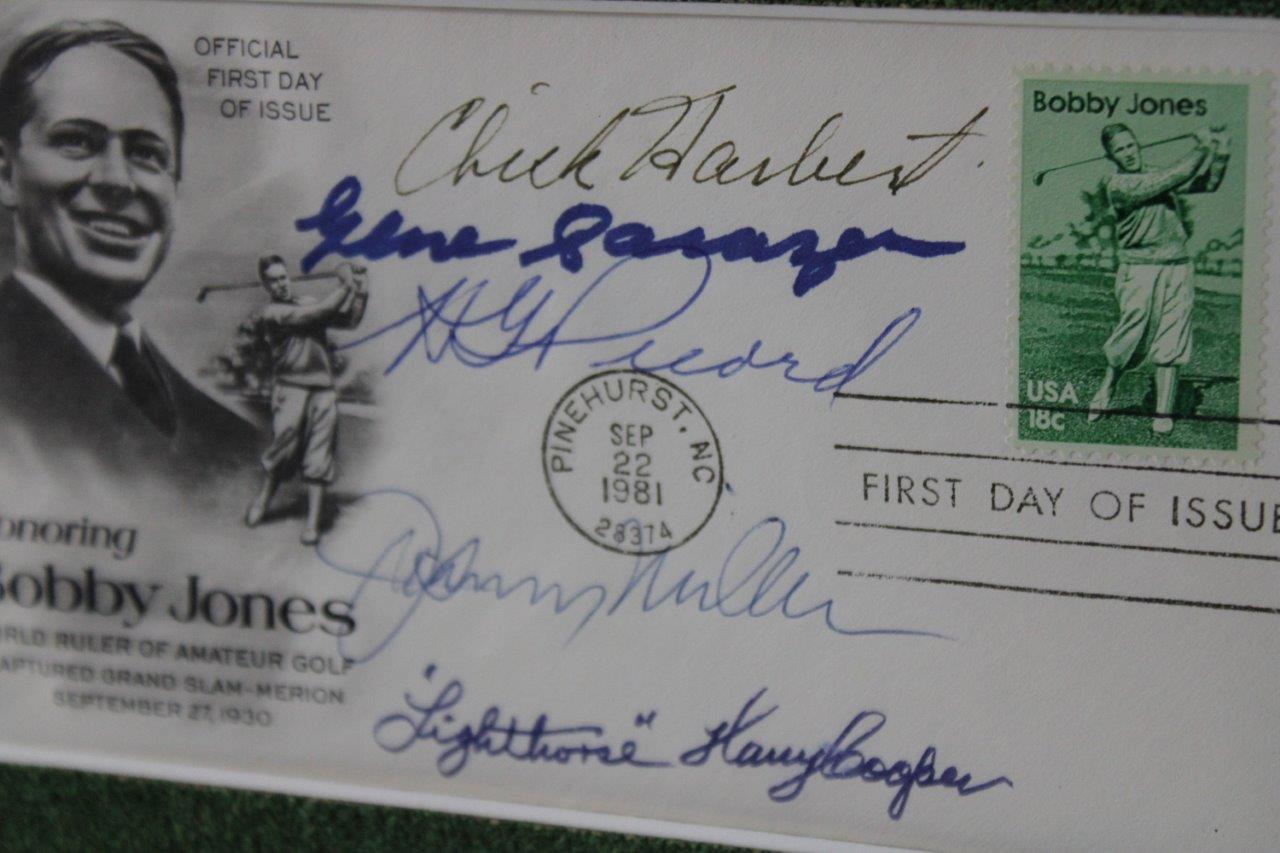 OFFICIAL
FIRST DAY
OF ISSUE
Chick Harbert
Gene Sarazen
H G Picard
Johnny Miller
"Lighthorse" Harry Cooper
Bobby Jones
USA
18c
PINEHURST, NC
SEP
22
1981
28374
FIRST DAY OF ISSUE
onoring
Bobby Jones
RLD RULER OF AMATEUR GOLF
APTURED GRAND SLAM-MERION
SEPTEMBER 27, 1930